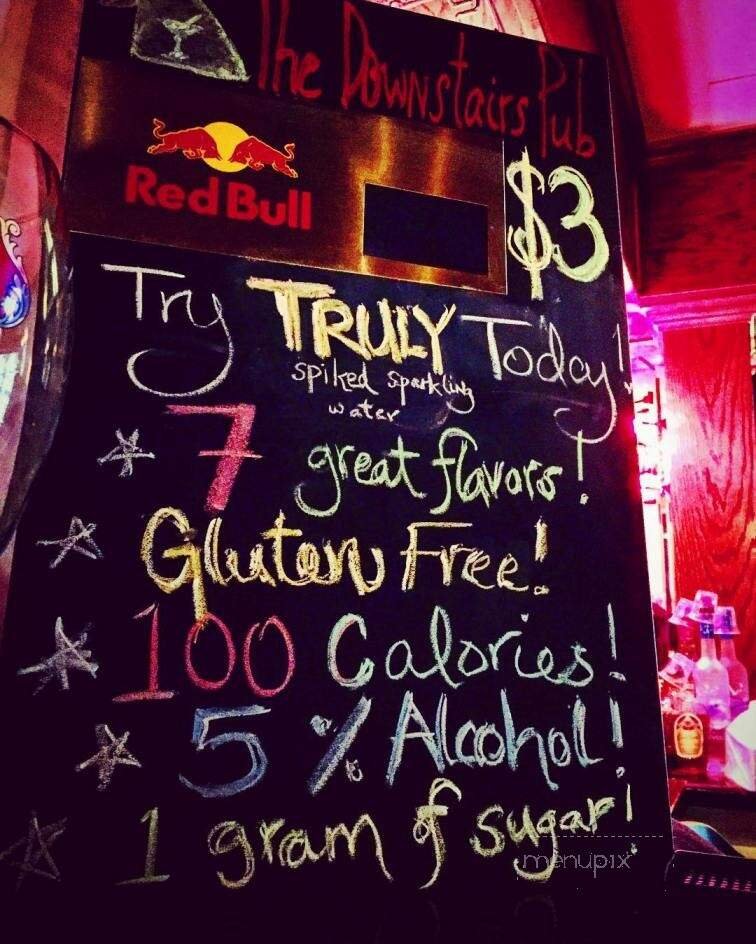 The Downstairs Pub
Red Bull
$3
Try TRULY Today!
spiked sparkling
water
7 great flavors!
Gluten Free!
100 Calories!
5% Alcohol!
1 gram of sugar!
menupix